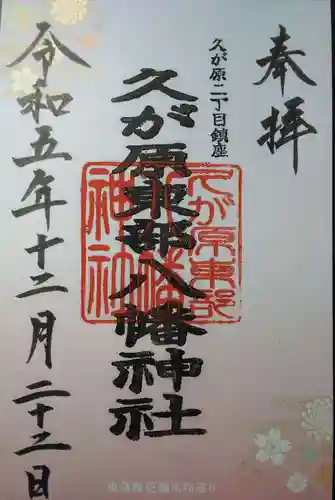 奉拝
久が原二丁目鎮座
久が原東部八幡神社
久が原東部
八幡
神社
令和五年十二月二十二日